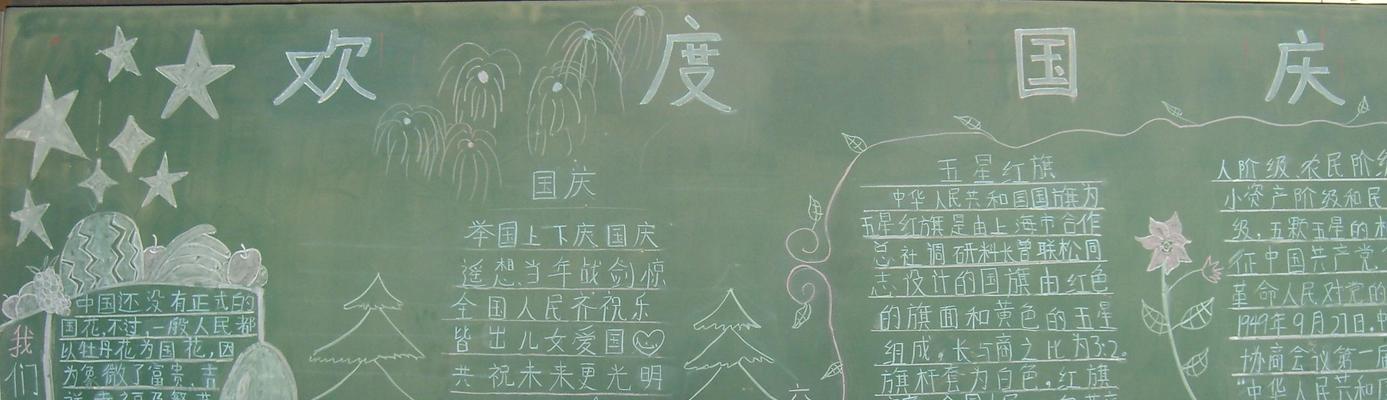 欢度国庆
中国还没有正式的
国花,不过,一般人民都
以牡丹花为国花,因
为象徵了富贵、吉
我们
国庆
举国上下庆国庆
遥想当年战剑惊
全国人民齐祝乐
皆出儿女爱国
共祝未来更光明
五星红旗
中华人民共和国国旗为
五星红旗是由上海市合作
总社调研科长曾联松同
志设计的国旗由红色
的旗面和黄色的五星
组成,长与高之比为3:2。
旗杆套为白色。红旗
六
人阶级、农民阶级
小资产阶级和民
级,五颗五星的
征中国共产党
革命人民对党的
1949年9月27日,中
协商会议第一届
"中华人民共和